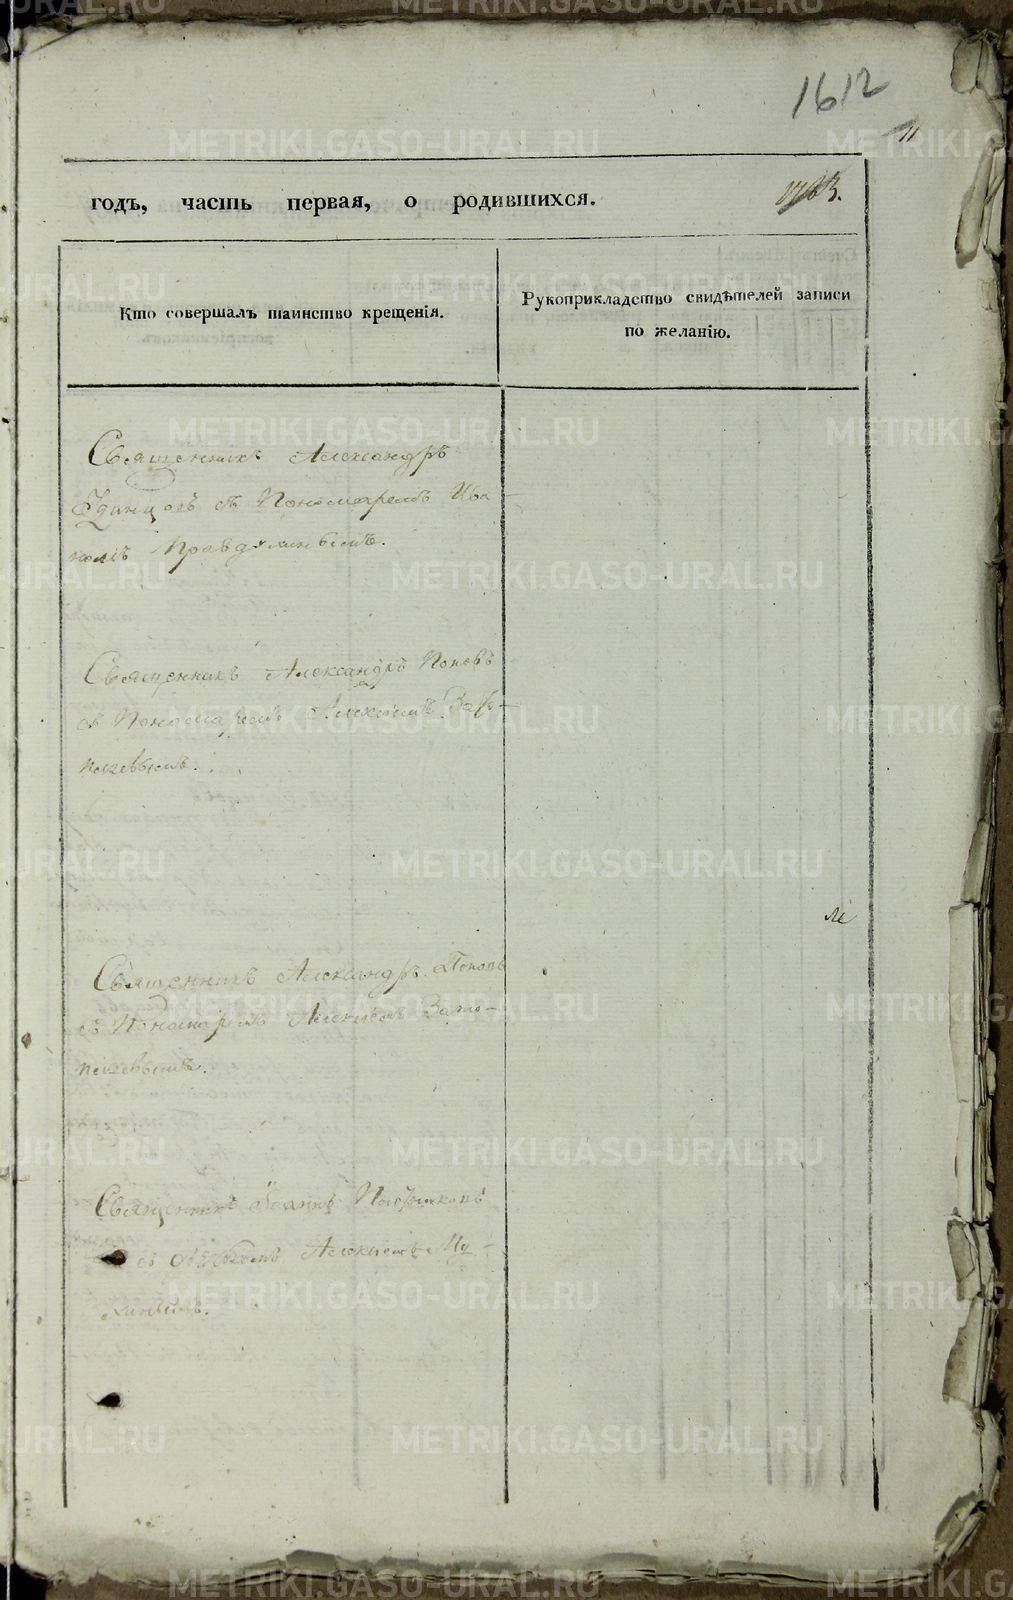 1612
11
годъ, часть первая, о родившихся.
Кто совершалъ таинство крещенія.
Рукоприкладство свидѣтелей записи
по желанію.
Священникъ Александръ
Удинцовъ съ Пономаремъ Ива-
номъ
Священникъ Александръ Поповъ
съ Пономаремъ Алексіемъ
Священникъ Александръ Поповъ
съ Пономаремъ Алексіемъ Зато-
Священникъ Іоаннъ
съ Алексіемъ Му-
хинымъ.
METRIKI.GASO-URAL.RU